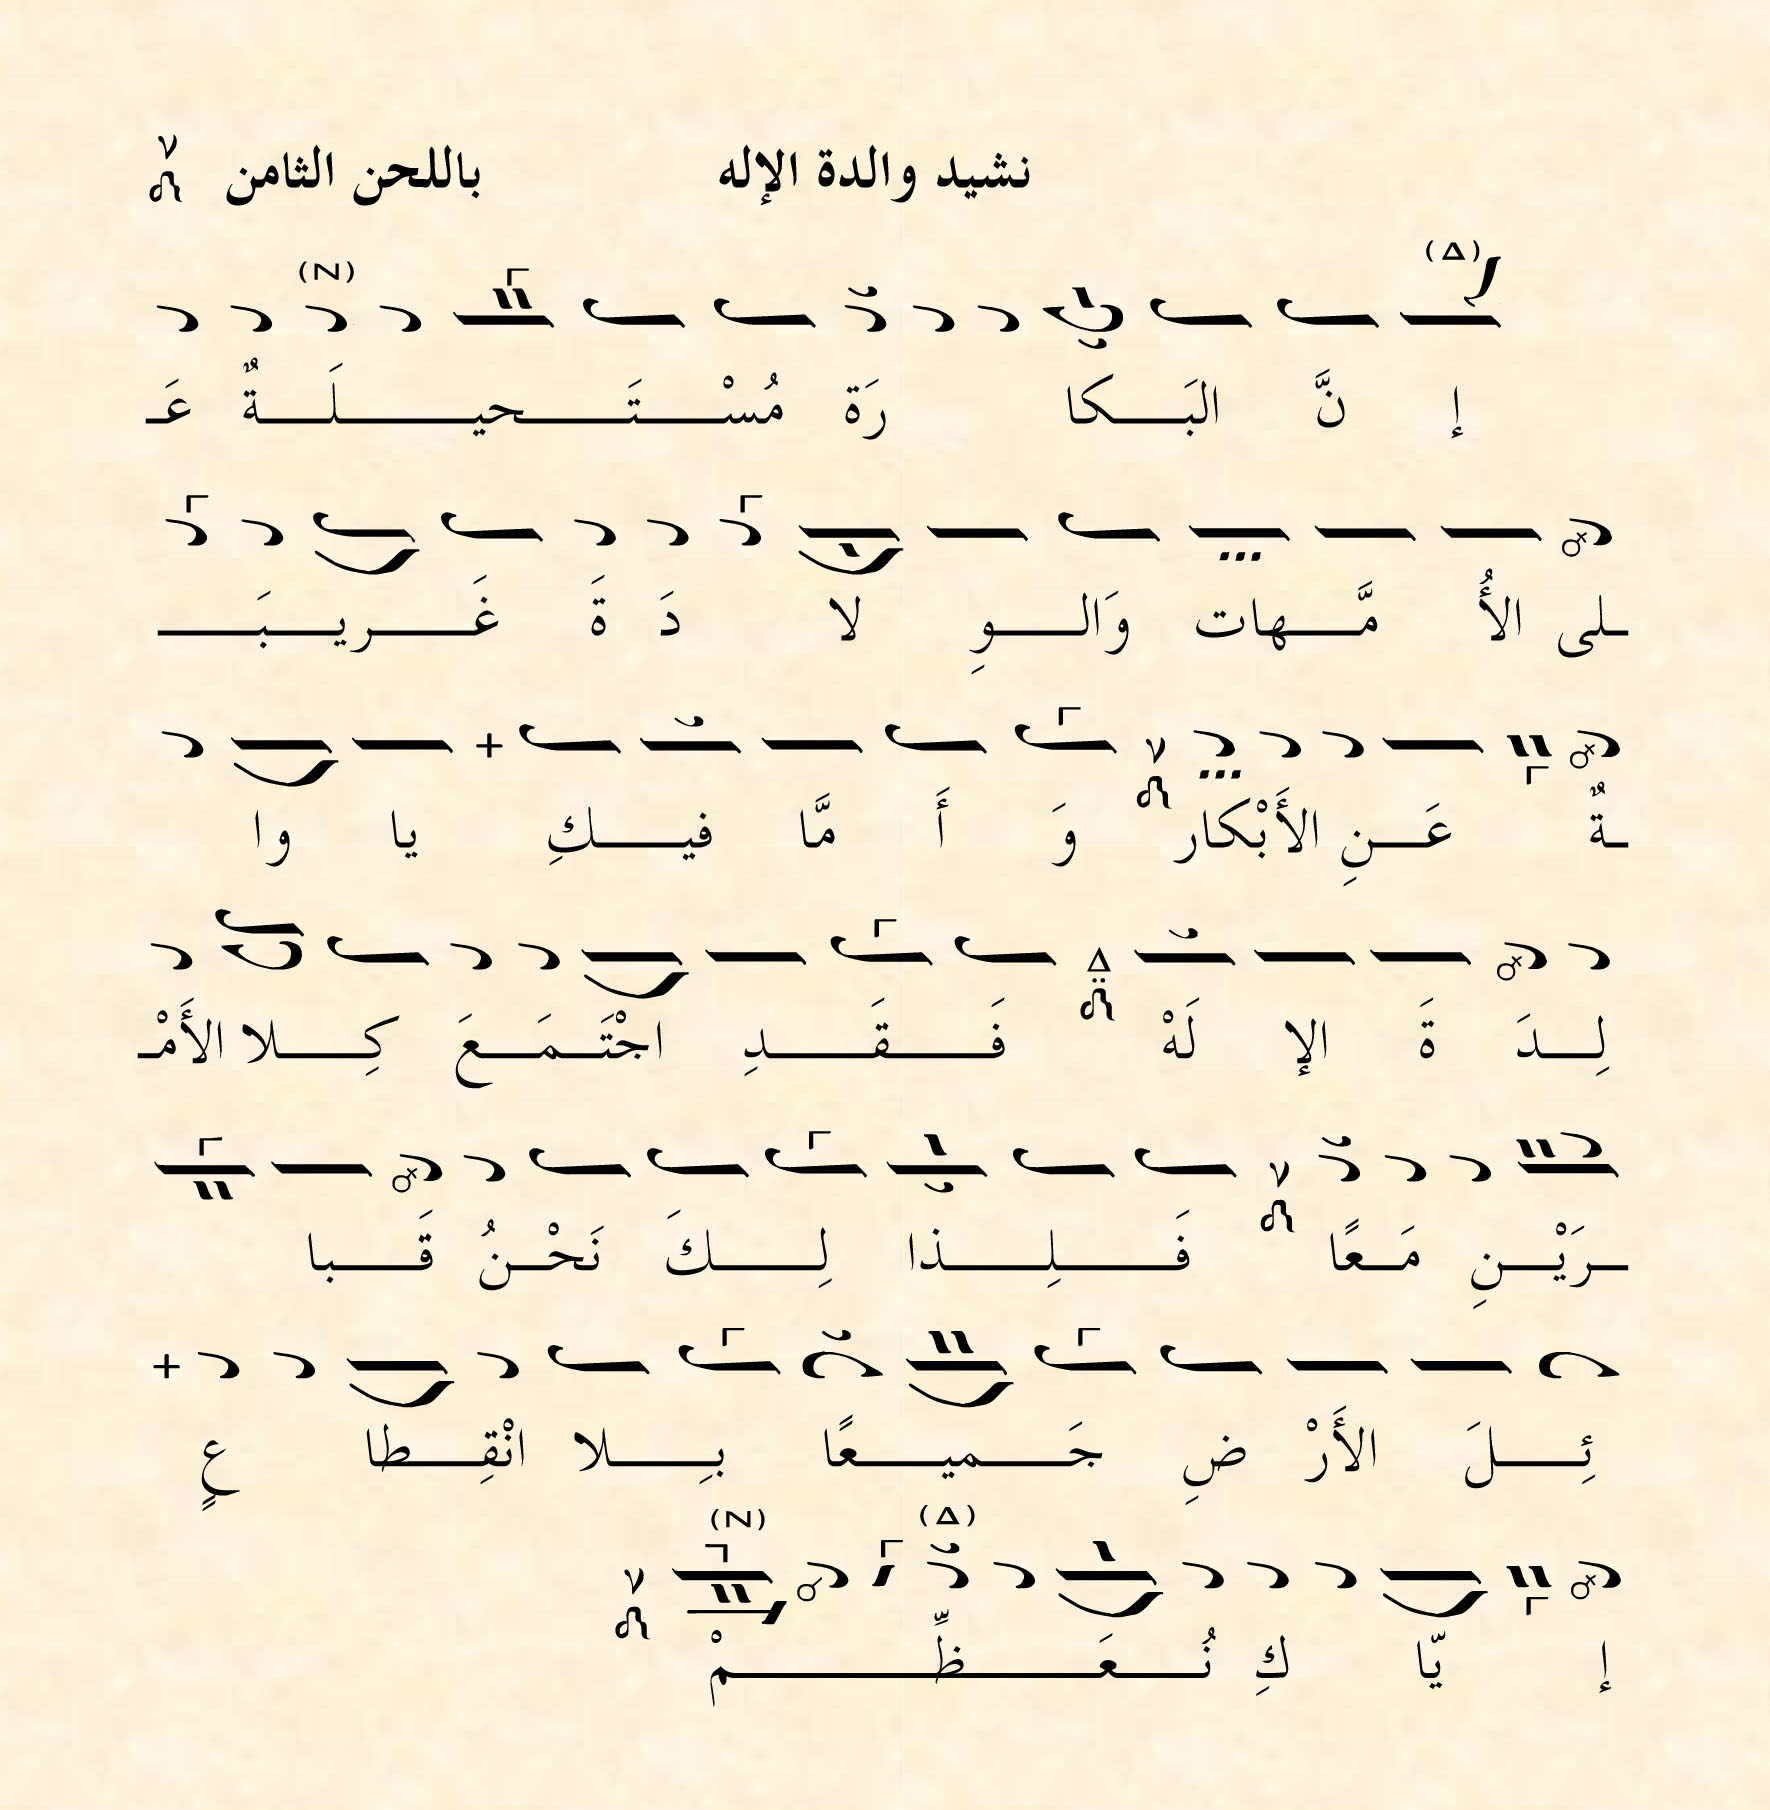 نشيد والدة الإله باللحن الثامن
(Δ) (N)
إ نَّ البَـكا رَة مُسْـتَـحيـلَـةٌ عَـ
ـلى الأُ مَّـهات وَالـوِ لا دَ ةَ غَـريـبَـ
ـةٌ عَـنِ الأَبْكار وَ أَ مَّا فيـكِ يا وا
لِـدَ ةَ الإ لَهْ فَـقَـدِ اجْتَـمَـعَ كِـلا الأَمْـ
ـرَيْـنِ مَـعًا فَـلِـذا لِـكَ نَحْـنُ قَـبا
ئِـلَ الأَرْ ضِ جَـميـعًا بِـلا انْقِـطا عٍ
(Δ) (N)
إ يّا كِ نُـعَـظِّـمْ